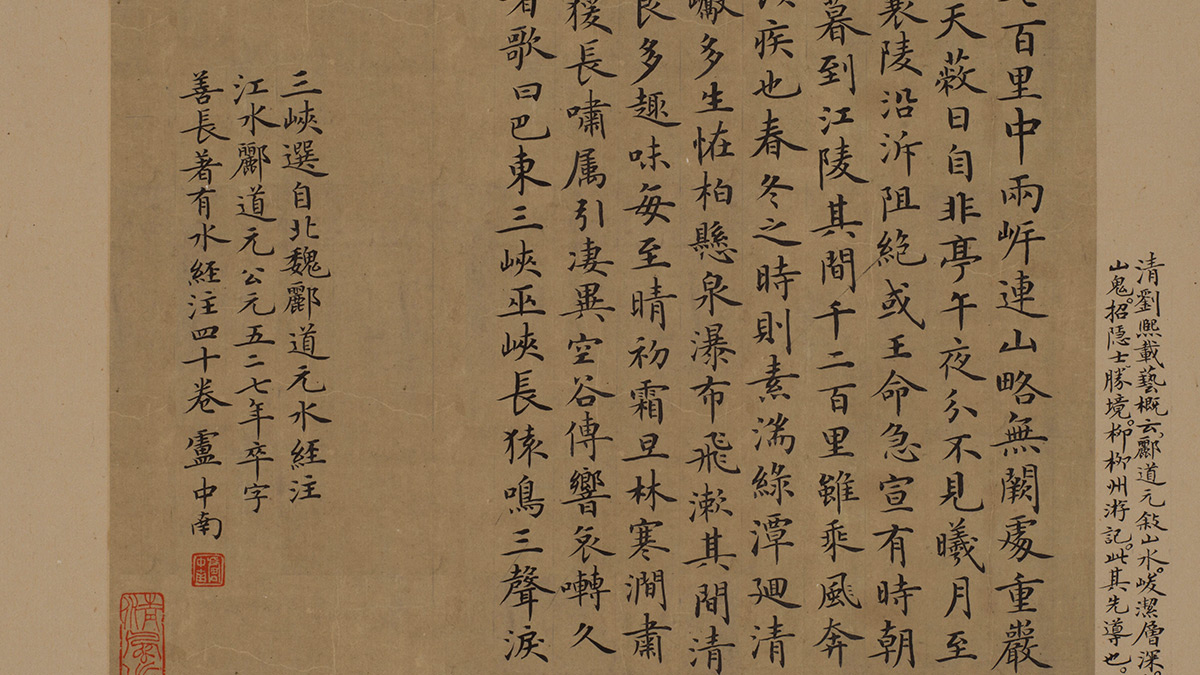 清劉熙載藝概云酈道元敘山水。峻潔層深。
山鬼。招隱士勝境。柳柳州游記。此其先導也。
百里中兩岸連山略無闕處重巖
天蔽日自非亭午夜分不見曦月至
襄陵沿泝阻絕或王命急宣有時朝
暮到江陵其間千二百里雖乘風奔
疾也春冬之時則素湍綠潭迴清
巘多生怪柏懸泉瀑布飛漱其間清
良多趣味每至晴初霜旦林寒澗肅
猨長嘯属引凄異空谷傳響哀囀久
者歌曰巴東三峽巫峽長猿鳴三聲淚
三峽選自北魏酈道元水経注
江水酈道元公元五二七年卒字
善長著有水経注四十卷 盧中南
清風